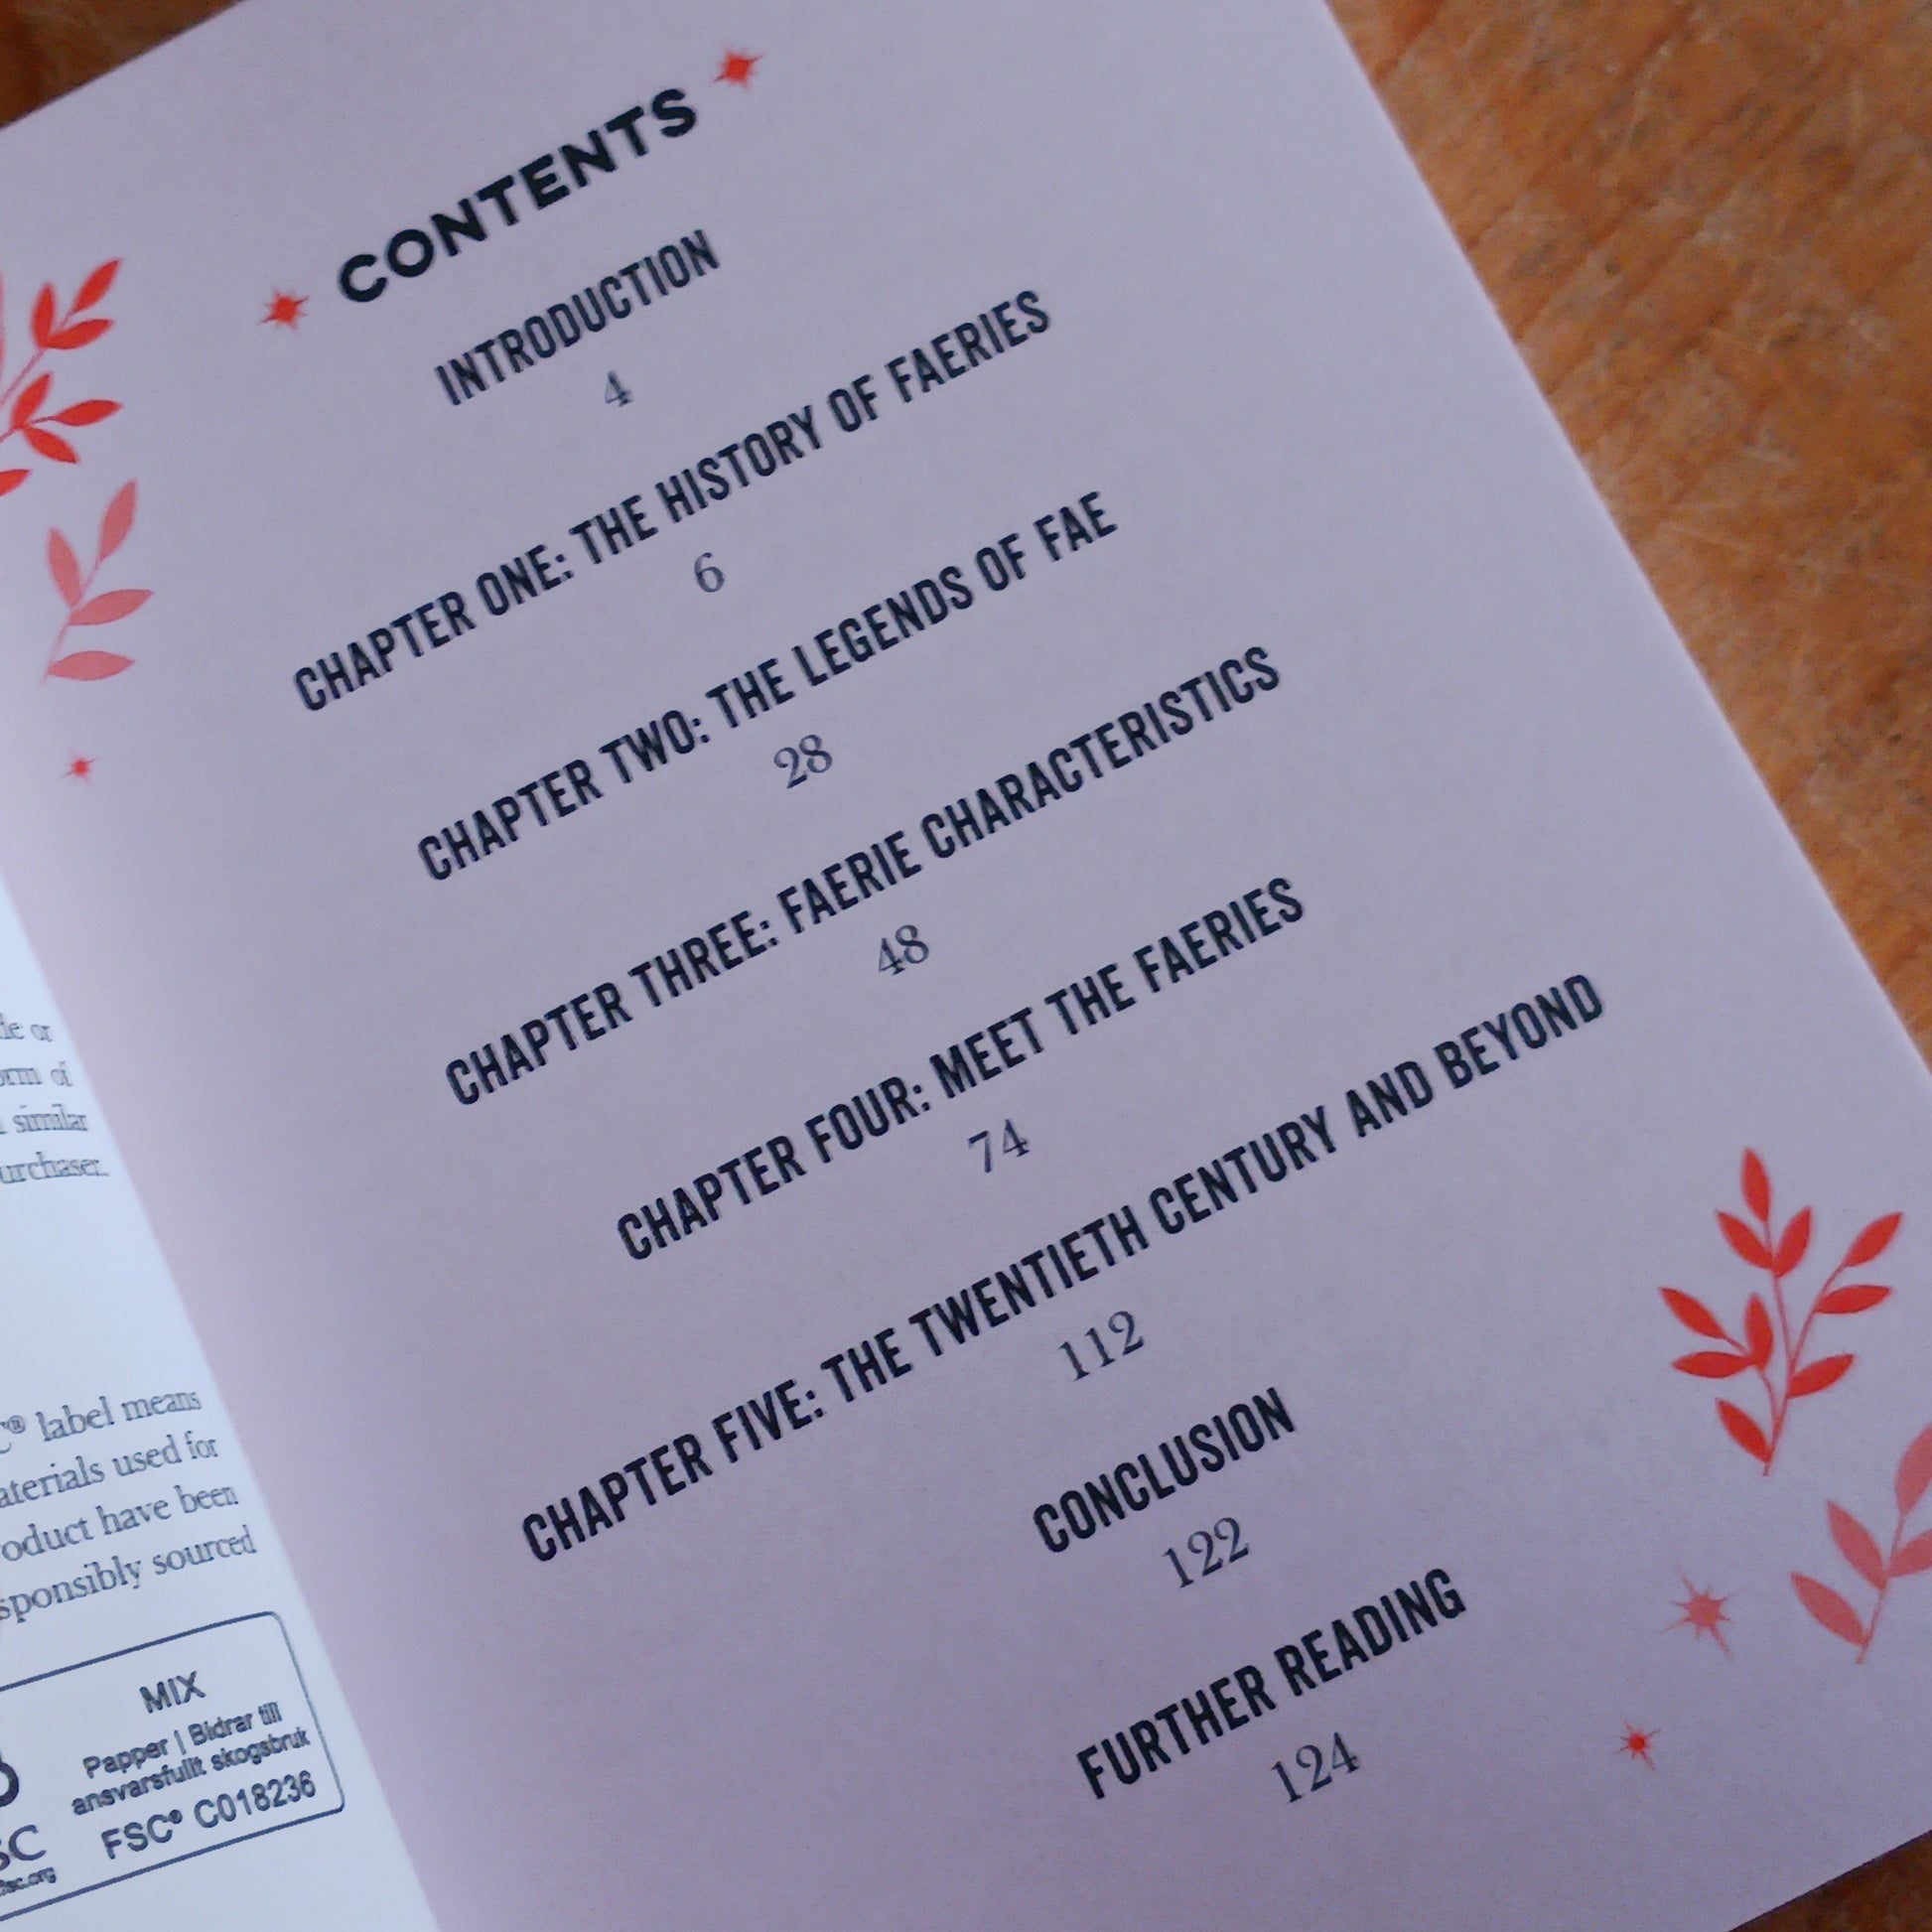 de or
orm of
similar
urchaser.
label means
aterials used for
oduct have been
sponsibly sourced
MIX
Papper | Bidrar till
ansvarsfullt skogsbruk
FSC® C018236
CONTENTS
INTRODUCTION
4
CHAPTER ONE: THE HISTORY OF FAERIES
6
CHAPTER TWO: THE LEGENDS OF FAE
28
CHAPTER THREE: FAERIE CHARACTERISTICS
48
CHAPTER FOUR: MEET THE FAERIES
74
CHAPTER FIVE: THE TWENTIETH CENTURY AND BEYOND
112
CONCLUSION
122
FURTHER READING
124